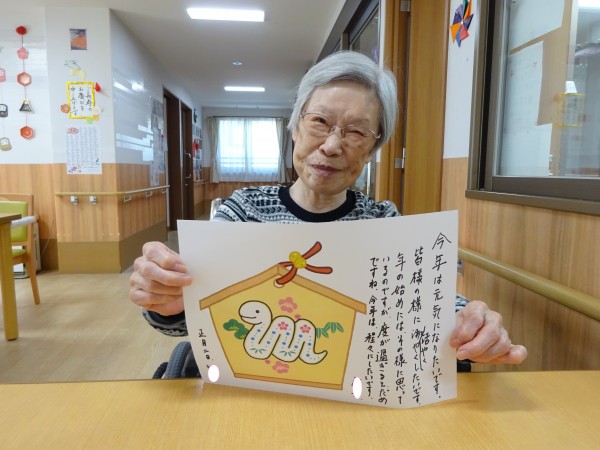 今年は元気になりたいです。
皆様の様に活やくしたいです
年の始めにはその様に思って
いるのですが、度が過ぎるとだめ
ですね。今年は、程々にしたいです。
正月二日、